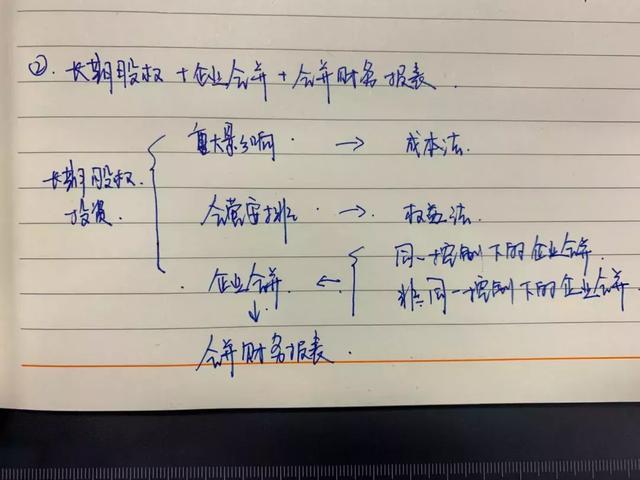 ②. 长期股权 + 企业合并 + 合并财务报表.
重大影响. → 成本法.
长期股权.
投资.
合营安排 → 权益法.
同一控制下的企业合并.
企业合并. ←
非同一控制下的企业合并.
↓
合并财务报表.